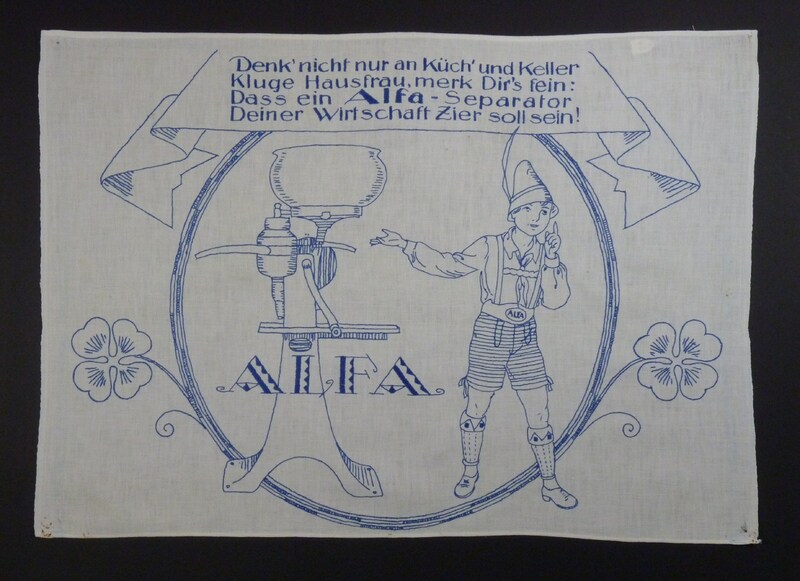 Denk' nicht nur an Küch' und Keller
Kluge Hausfrau, merk Dir's fein:
Dass ein Alfa - Separator
Deiner Wirtschaft Zier soll sein!
ALFA
ALFA